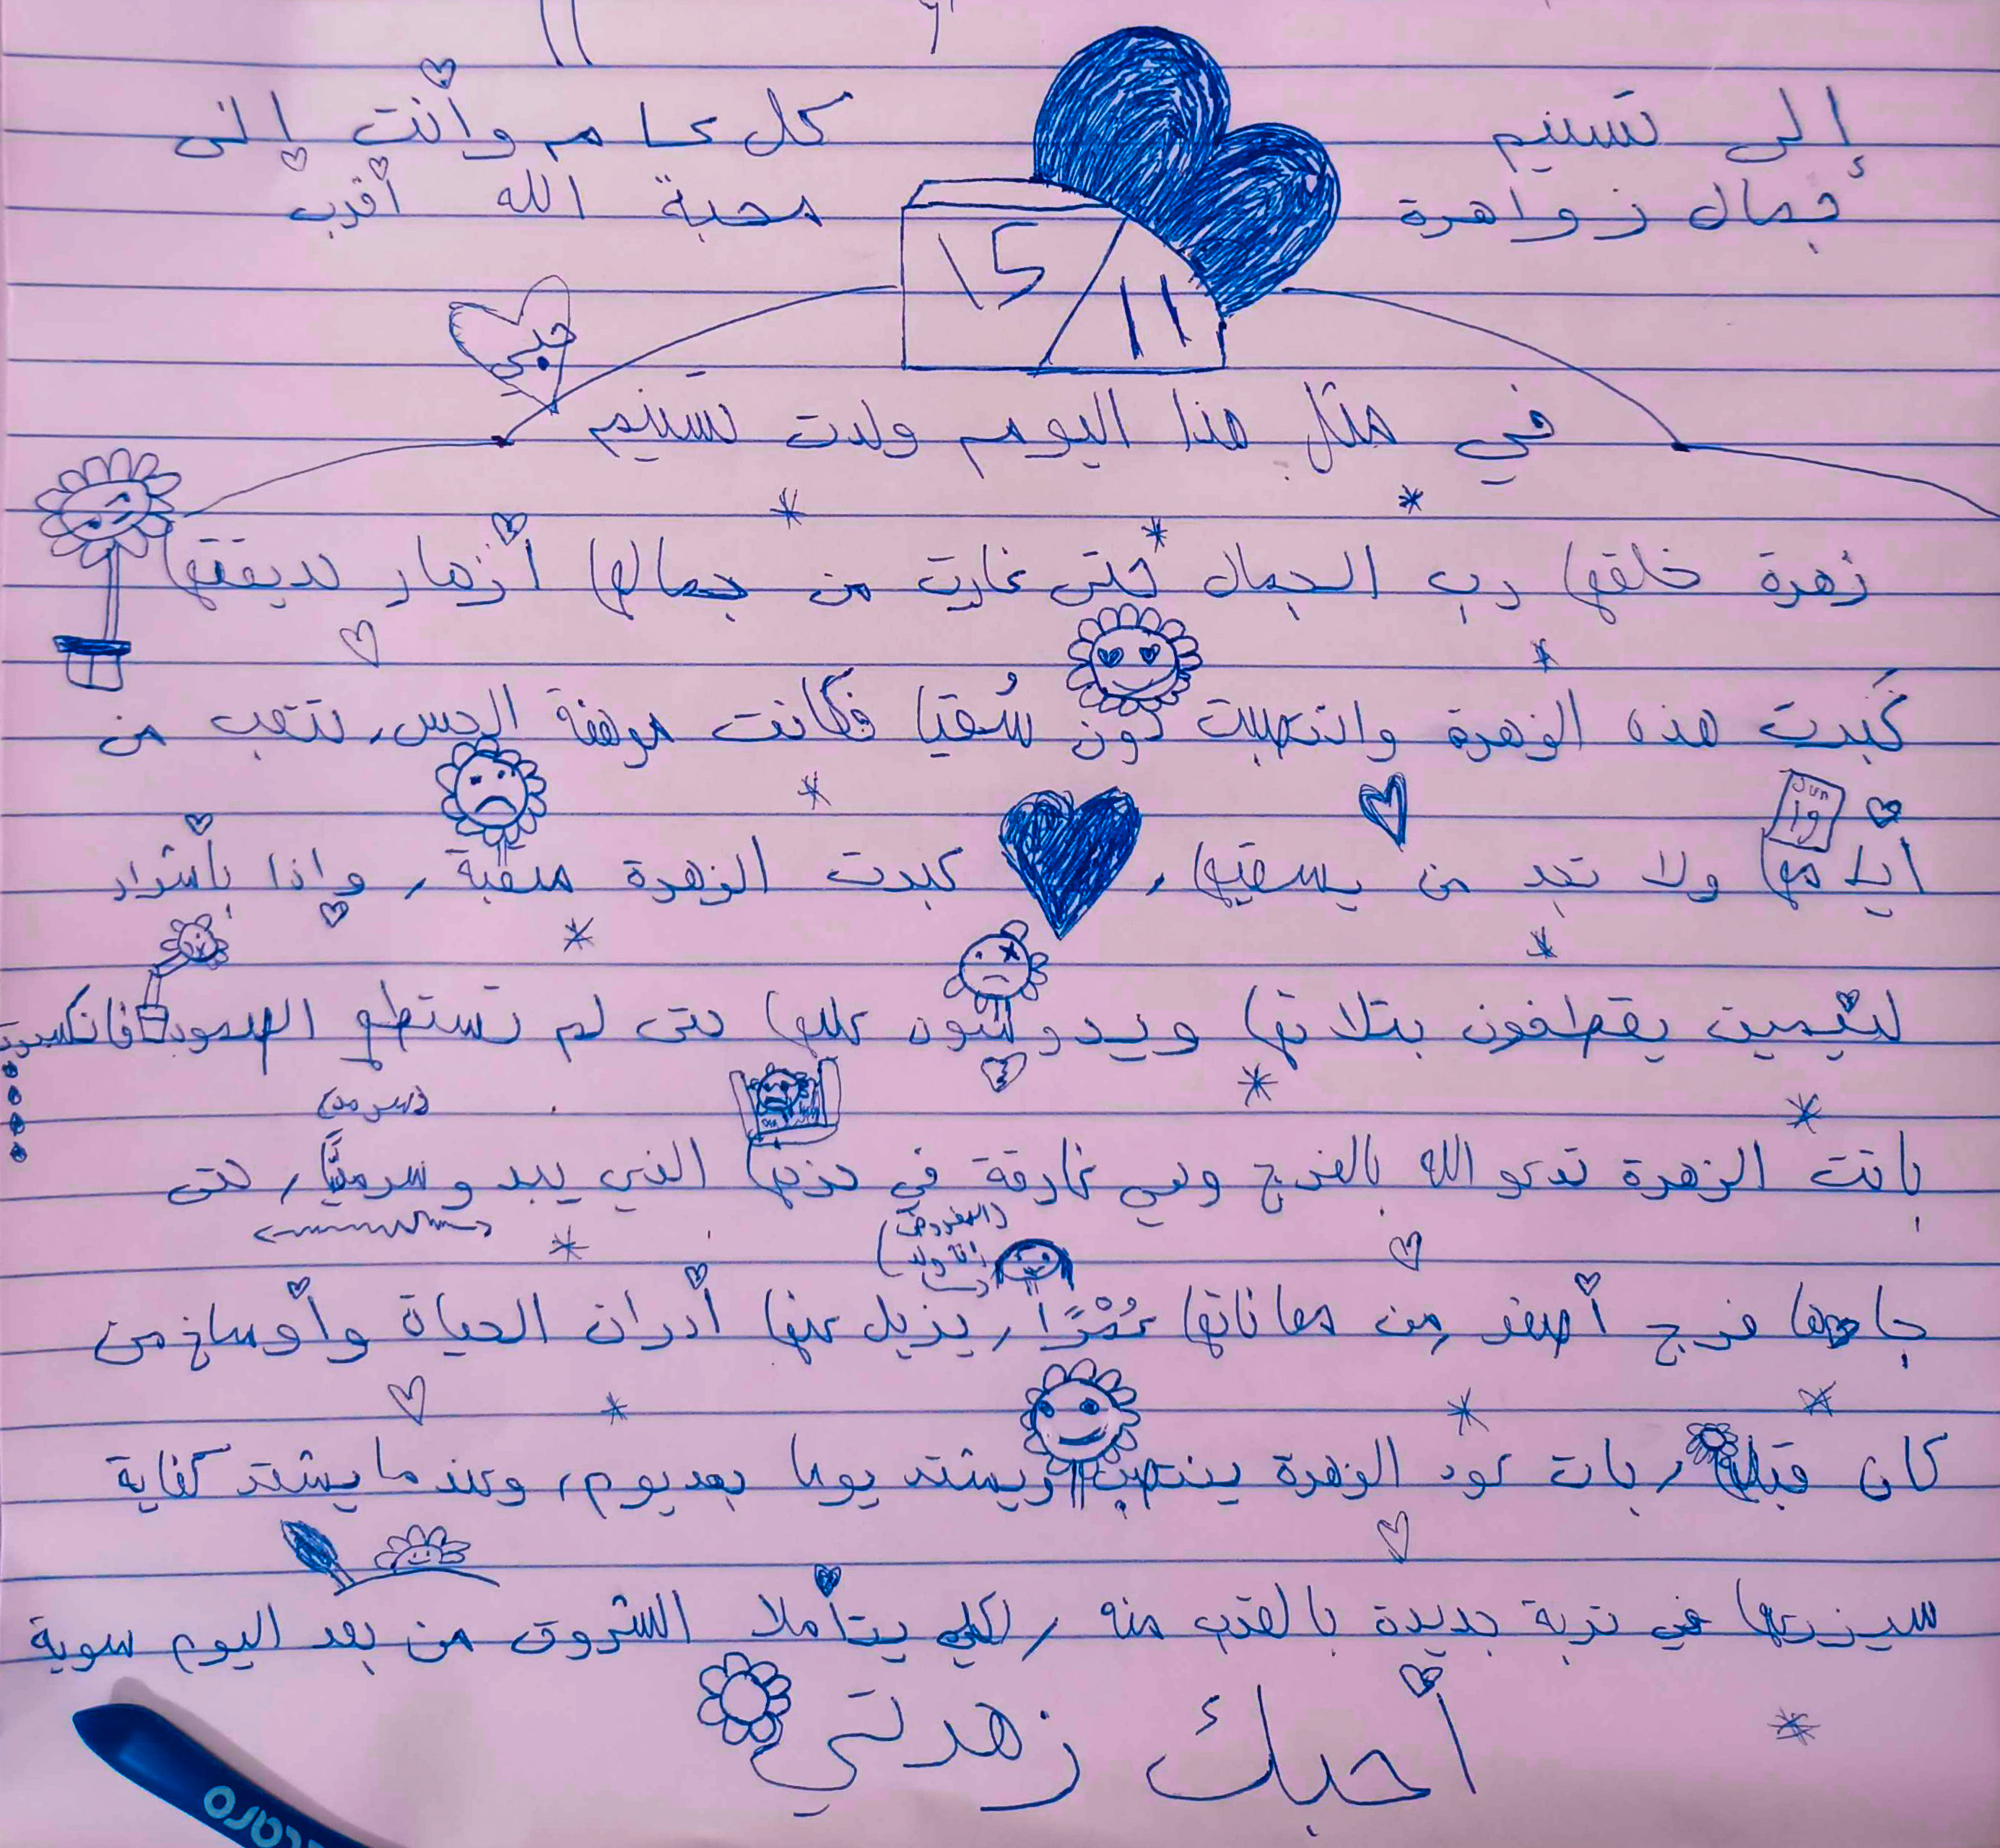 إلى تسنيم
أجمال زواهرة
كل عام وأنت إلى
محبة الله أقرب
15/11
حبي
في مثل هذا اليوم ولدت تسنيم
زهرة خلقها رب الجمال حتى غارت من جمالها أزهار حديقتها
كَبرت هذه الزهرة وانتصبت دون سُقيا فكانت مرهفة الحس, تتعب من
Jun 19
أيامها ولا تجد من يسقيها, كبرت الزهرة متعبة, وإذا بأشرار
لئيمين يقطفون بتلاتها ويدوسون عليها حتى لم تستطع الصمود فانكسرت
(سرمدي)
باتت الزهرة تدعو الله بالفرج وهي غارقة في حزنها الذي يبدو سرمديًّا, حتى
(المفروض
إنا ولد)
جاءها فرج أصغر من معاناتها عُمْرًا, يزيل عنها أدران الحياة وأوساخ من
كان قبله, بات عود الزهرة ينتصب ويشتد يوما بعد يوم, وعندما يشتد كفاية
سيزرعها في تربة جديدة بالقرب منه, لكي يتأملا الشروق من بعد اليوم سوية
أحبك زهرتي